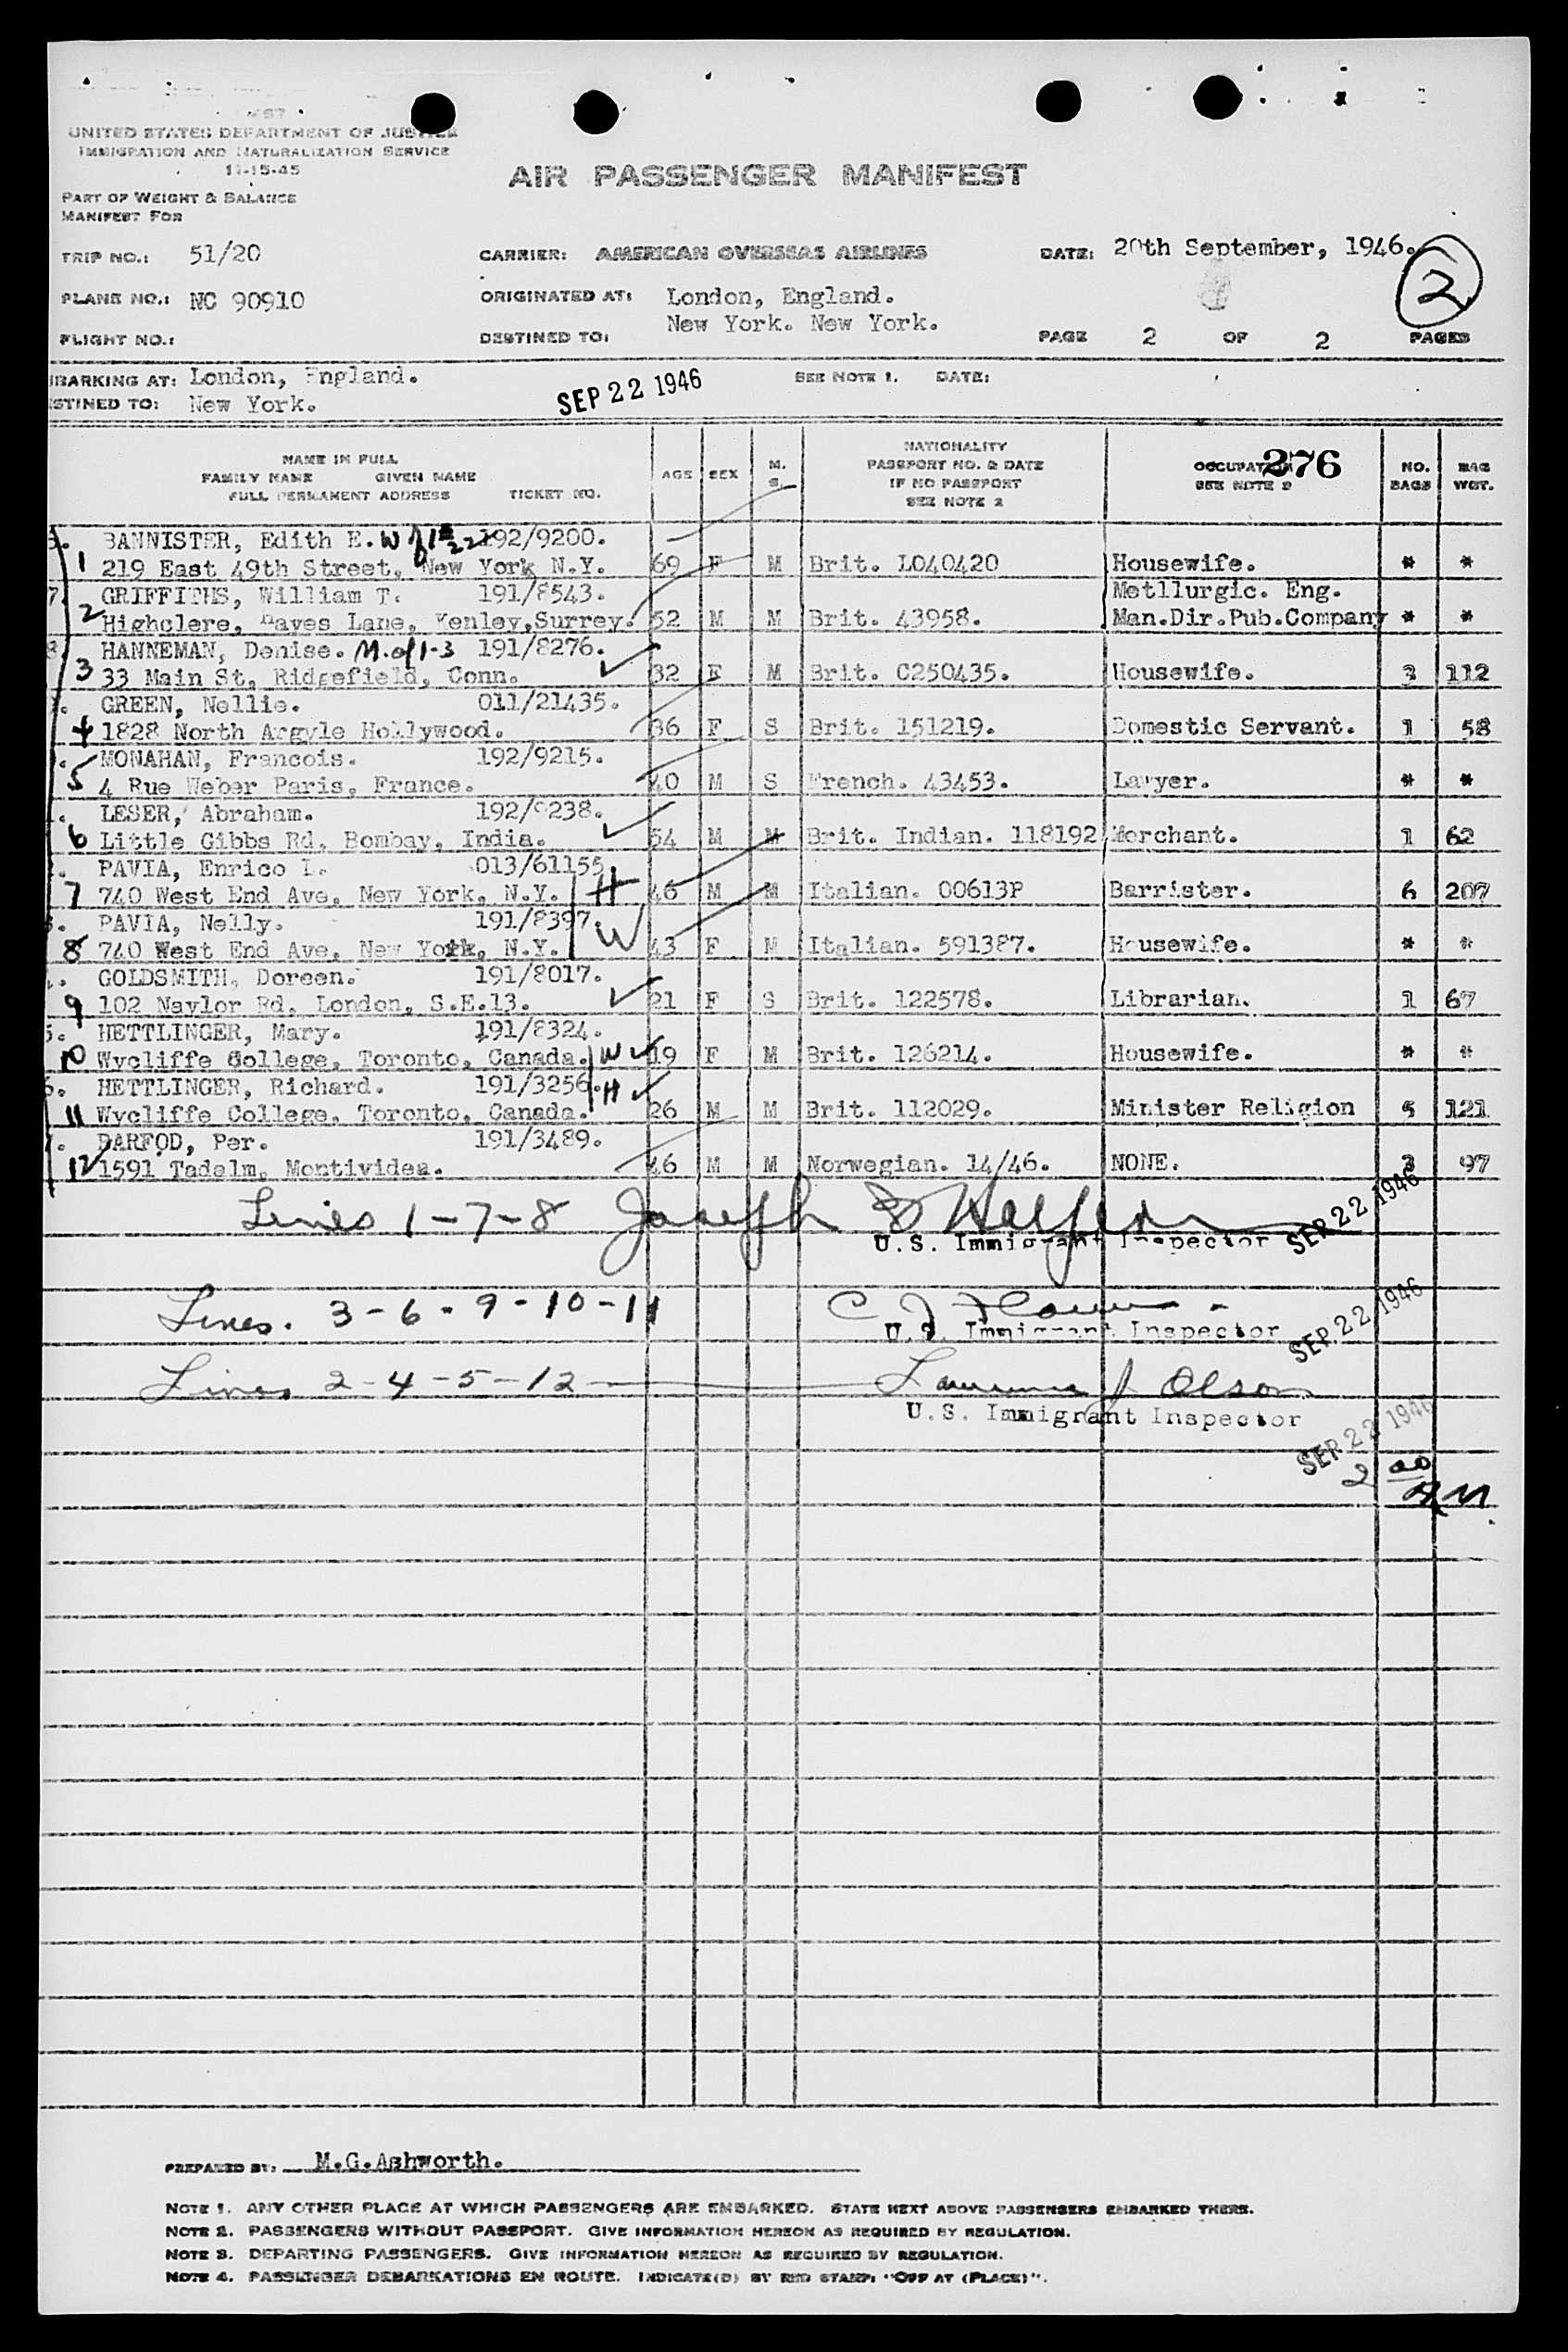 UNITED STATES DEPARTMENT OF JUSTICE
IMMIGRATION AND NATURALIZATION SERVICE
11-15-45
PART OF WEIGHT & BALANCE
MANIFEST FOR
AIR PASSENGER MANIFEST
TRIP NO.: 51/20 CARRIER: AMERICAN OVERSEAS AIRLINES DATE: 20th September, 1946.
2
PLANE NO.: NC 90910 ORIGINATED AT: London, England.
FLIGHT NO.: DESTINED TO: New York. New York. PAGE 2 OF 2 PAGES
BARKING AT: London, England. SEP 22 1946 SEE NOTE 1. DATE:
STINED TO: New York.
NAME IN FULL
FAMILY NAME GIVEN NAME
FULL PERMANENT ADDRESS TICKET NO. AGE SEX M. S. NATIONALITY
PASSPORT NO. & DATE
IF NO PASSPORT
SEE NOTE 2 OCCUPATION
SEE NOTE 2 276 NO. BAGS BAG WGT.
BANNISTER, Edith E. 192/9200.
1 219 East 49th Street, New York N.Y. 69 F M Brit. L040420 Housewife. * *
7. GRIFFITHS, William T. 191/8543. Metllurgic. Eng.
2 Highclere, Hayes Lane, Kenley,Surrey. 52 M M Brit. 43958. Man.Dir.Pub.Company * *
8. HANNEMAN, Denise. M. of 1-3 191/8276.
3 33 Main St, Ridgefield, Conn. 32 F M Brit. C250435. Housewife. 3 112
GREEN, Nellie. 011/21435.
4 1828 North Argyle Hollywood. 36 F S Brit. 151219. Domestic Servant. 1 58
MONAHAN, Francois. 192/9215.
5 4 Rue Weber Paris, France. 40 M S French. 43453. Lawyer. * *
LESER, Abraham. 192/9238.
6 Little Gibbs Rd, Bombay, India. 54 M M Brit. Indian. 118192 Merchant. 1 62
PAVIA, Enrico L. 013/61155
7 740 West End Ave, New York, N.Y. H 46 M M Italian. 00613P Barrister. 6 207
PAVIA, Nelly. 191/8397.
8 740 West End Ave, New York, N.Y. W 43 F M Italian. 591387. Housewife. * *
GOLDSMITH, Doreen. 191/8017.
9 102 Naylor Rd, London, S.E.13. 21 F S Brit. 122578. Librarian. 1 67
5. HETTLINGER, Mary. 191/8324.
10 Wycliffe College, Toronto, Canada. W 19 F M Brit. 126214. Housewife. * *
6. HETTLINGER, Richard. 191/3256. H
11 Wycliffe College, Toronto, Canada. 26 M M Brit. 112029. Minister Religion 5 121
DARFOD, Per. 191/3489.
12 1591 Tadelm, Montividea. 46 M M Norwegian. 14/46. NONE. 3 97
Lines 1-7-8 Joseph
U.S. Immigrant Inspector SEP 22 1946
Lines. 3-6-9-10-11 C J
U.S. Immigrant Inspector SEP 22 1946
Lines 2-4-5-12 Lawrence J Olson
U.S. Immigrant Inspector
SEP 22 1946
PREPARED BY: M.G.Ashworth.
NOTE 1. ANY OTHER PLACE AT WHICH PASSENGERS ARE EMBARKED. STATE NEXT ABOVE PASSENGERS EMBARKED THERE.
NOTE 2. PASSENGERS WITHOUT PASSPORT. GIVE INFORMATION HEREON AS REQUIRED BY REGULATION.
NOTE 3. DEPARTING PASSENGERS. GIVE INFORMATION HEREON AS REQUIRED BY REGULATION.
NOTE 4. PASSENGER DEBARKATIONS EN ROUTE. INDICATE(D) BY RED STAMP: "OFF AT (PLACE)".